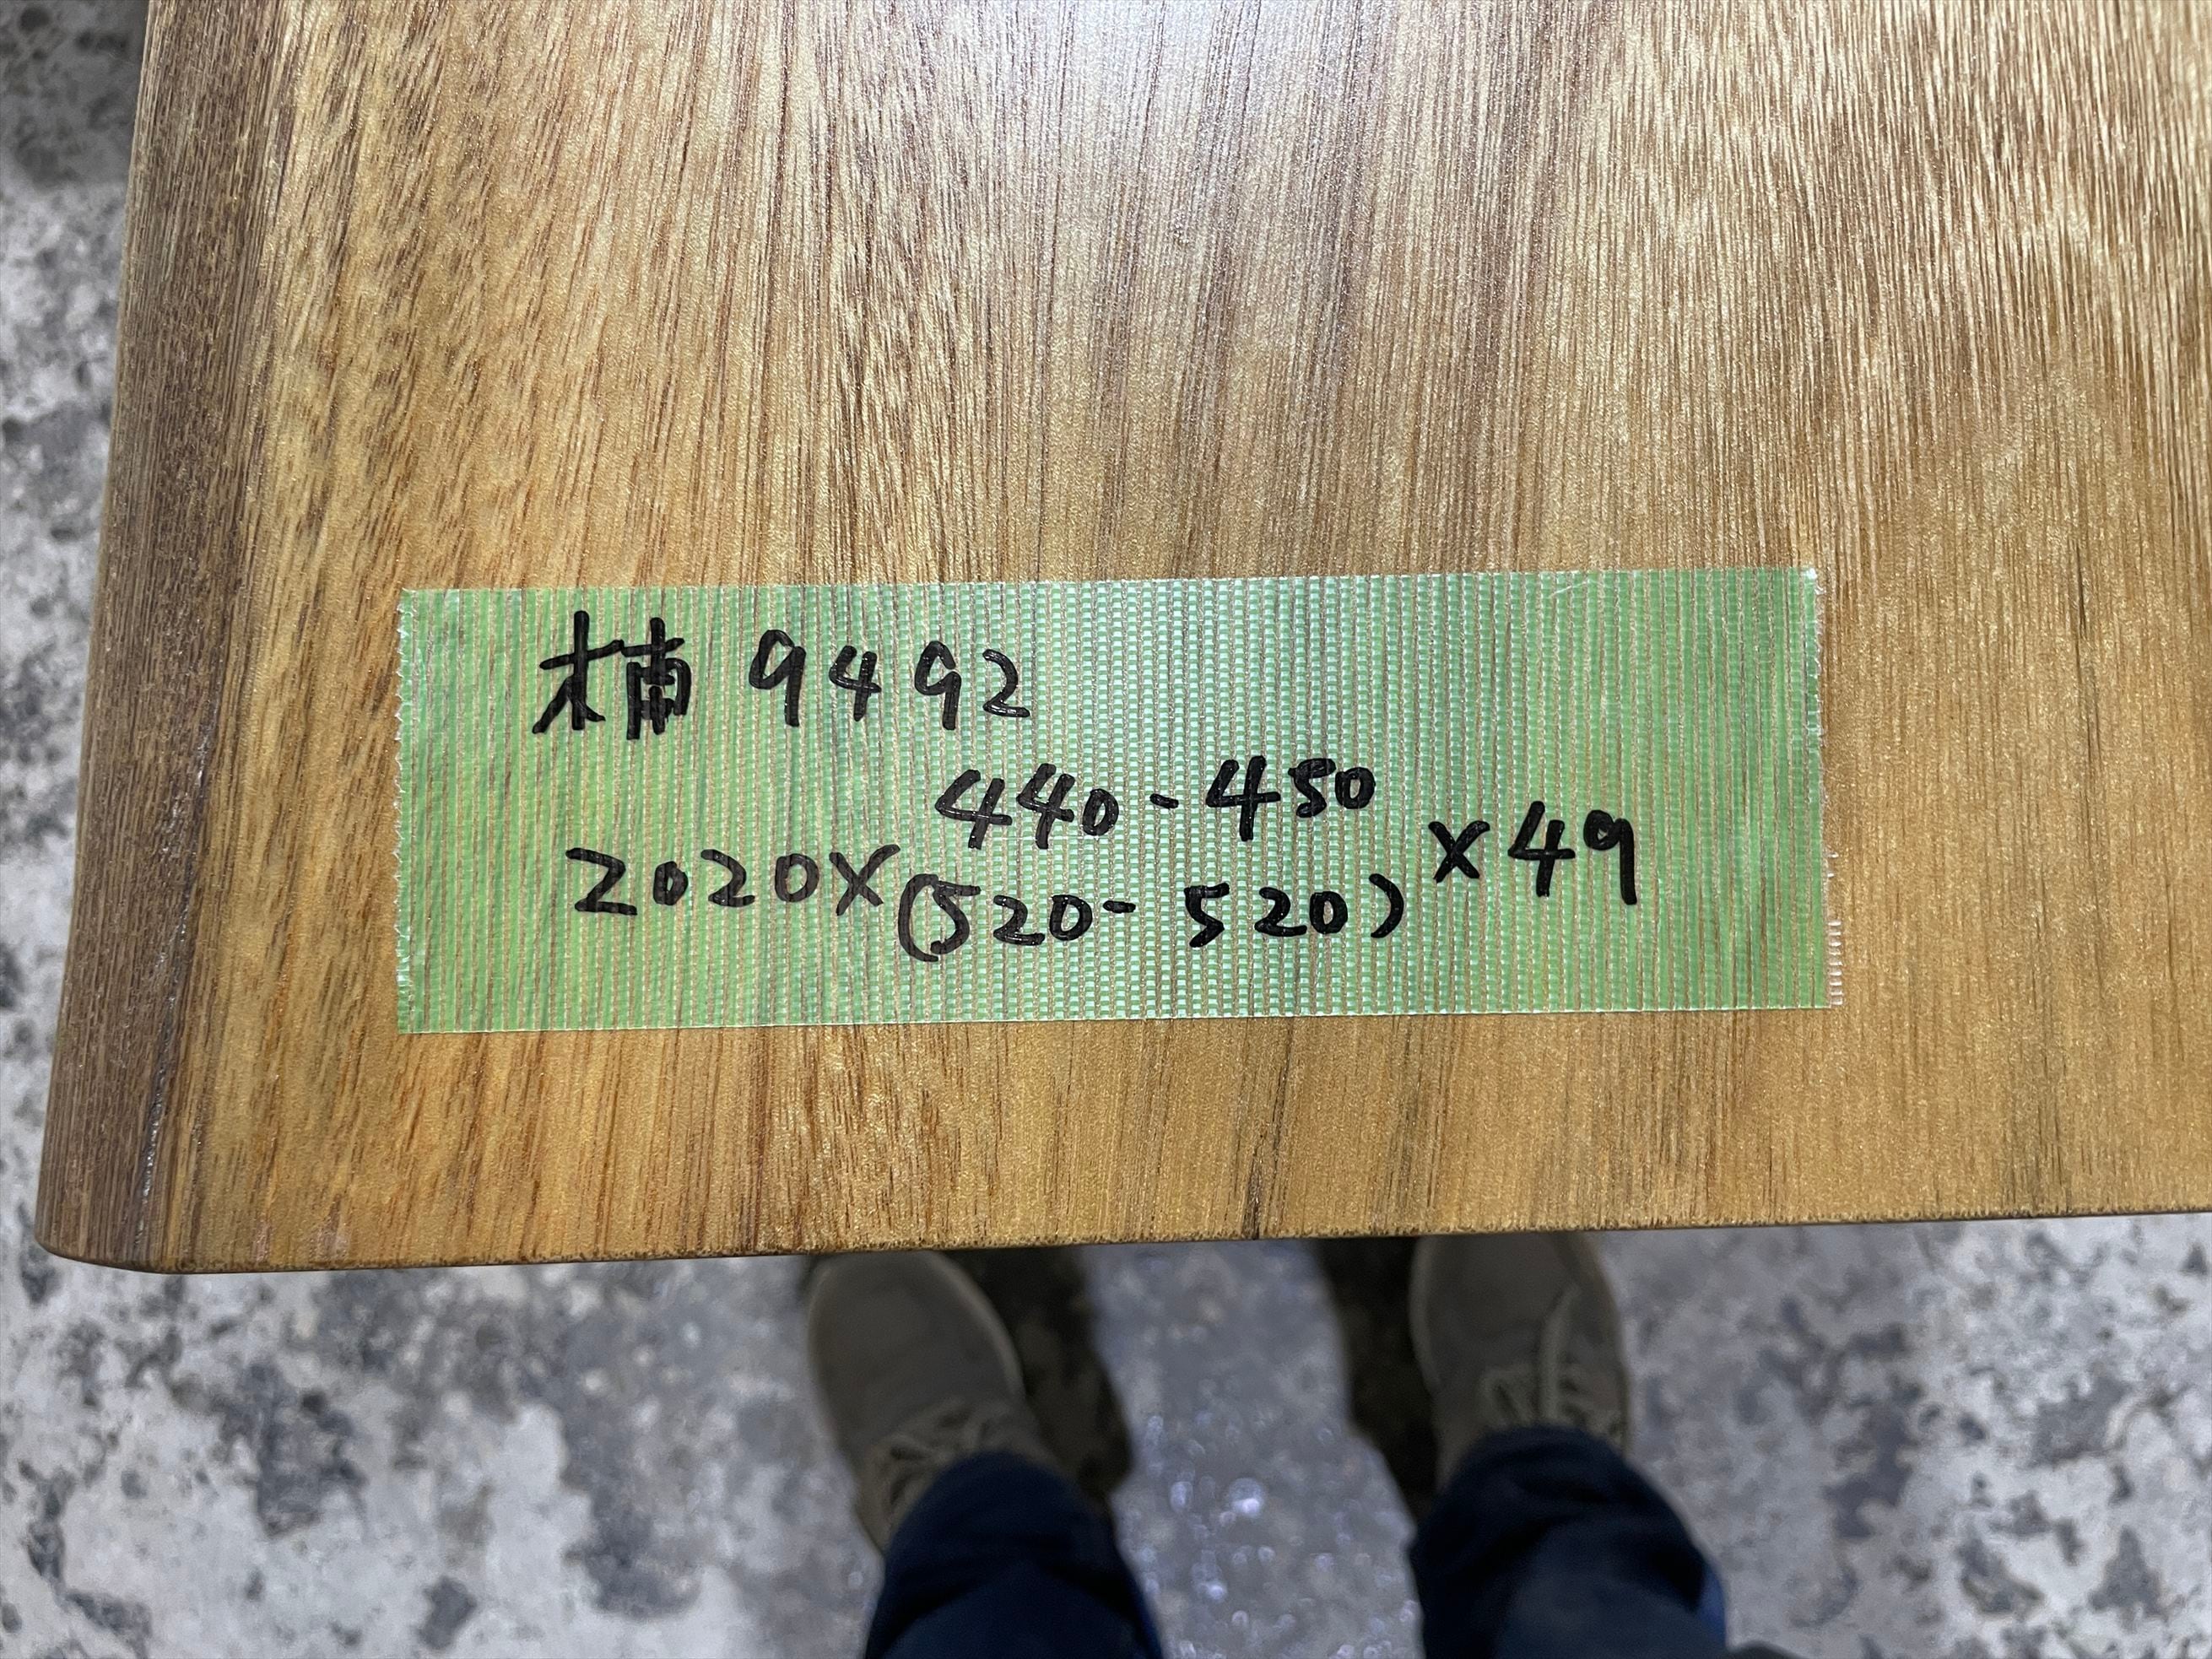 楠 9492
440-450
2020×(520-520)×49